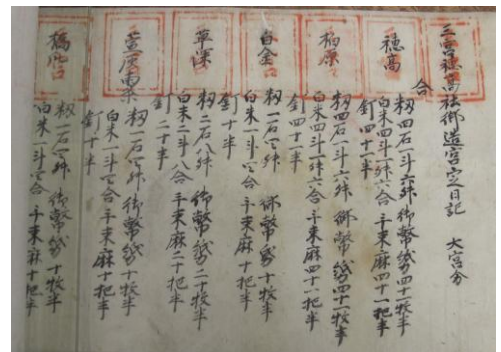 三宮穂高社御造宮定日記 大宮分
合
穂高 籾四石一斗六舛 御幣紙四十一枚半
白米四斗一舛六合 手束麻四十一把半
釘四十一半
柏原 籾四石一斗六舛 御幣紙四十一枚半
白米四斗一舛六合 手束麻四十一把半
釘四十一半
白金 籾一石 御幣紙十枚半
白米一斗 合 手束麻十把半
釘十半
草深 籾二石八舛 御幣紙二十枚半
白米二斗八合 手束麻二十把半
釘二十半
籾一石 御幣紙十枚半
白米一斗 合 手束麻十把半
釘十半
籾一石 御幣紙十枚半
白米一斗 合 手束麻十把半